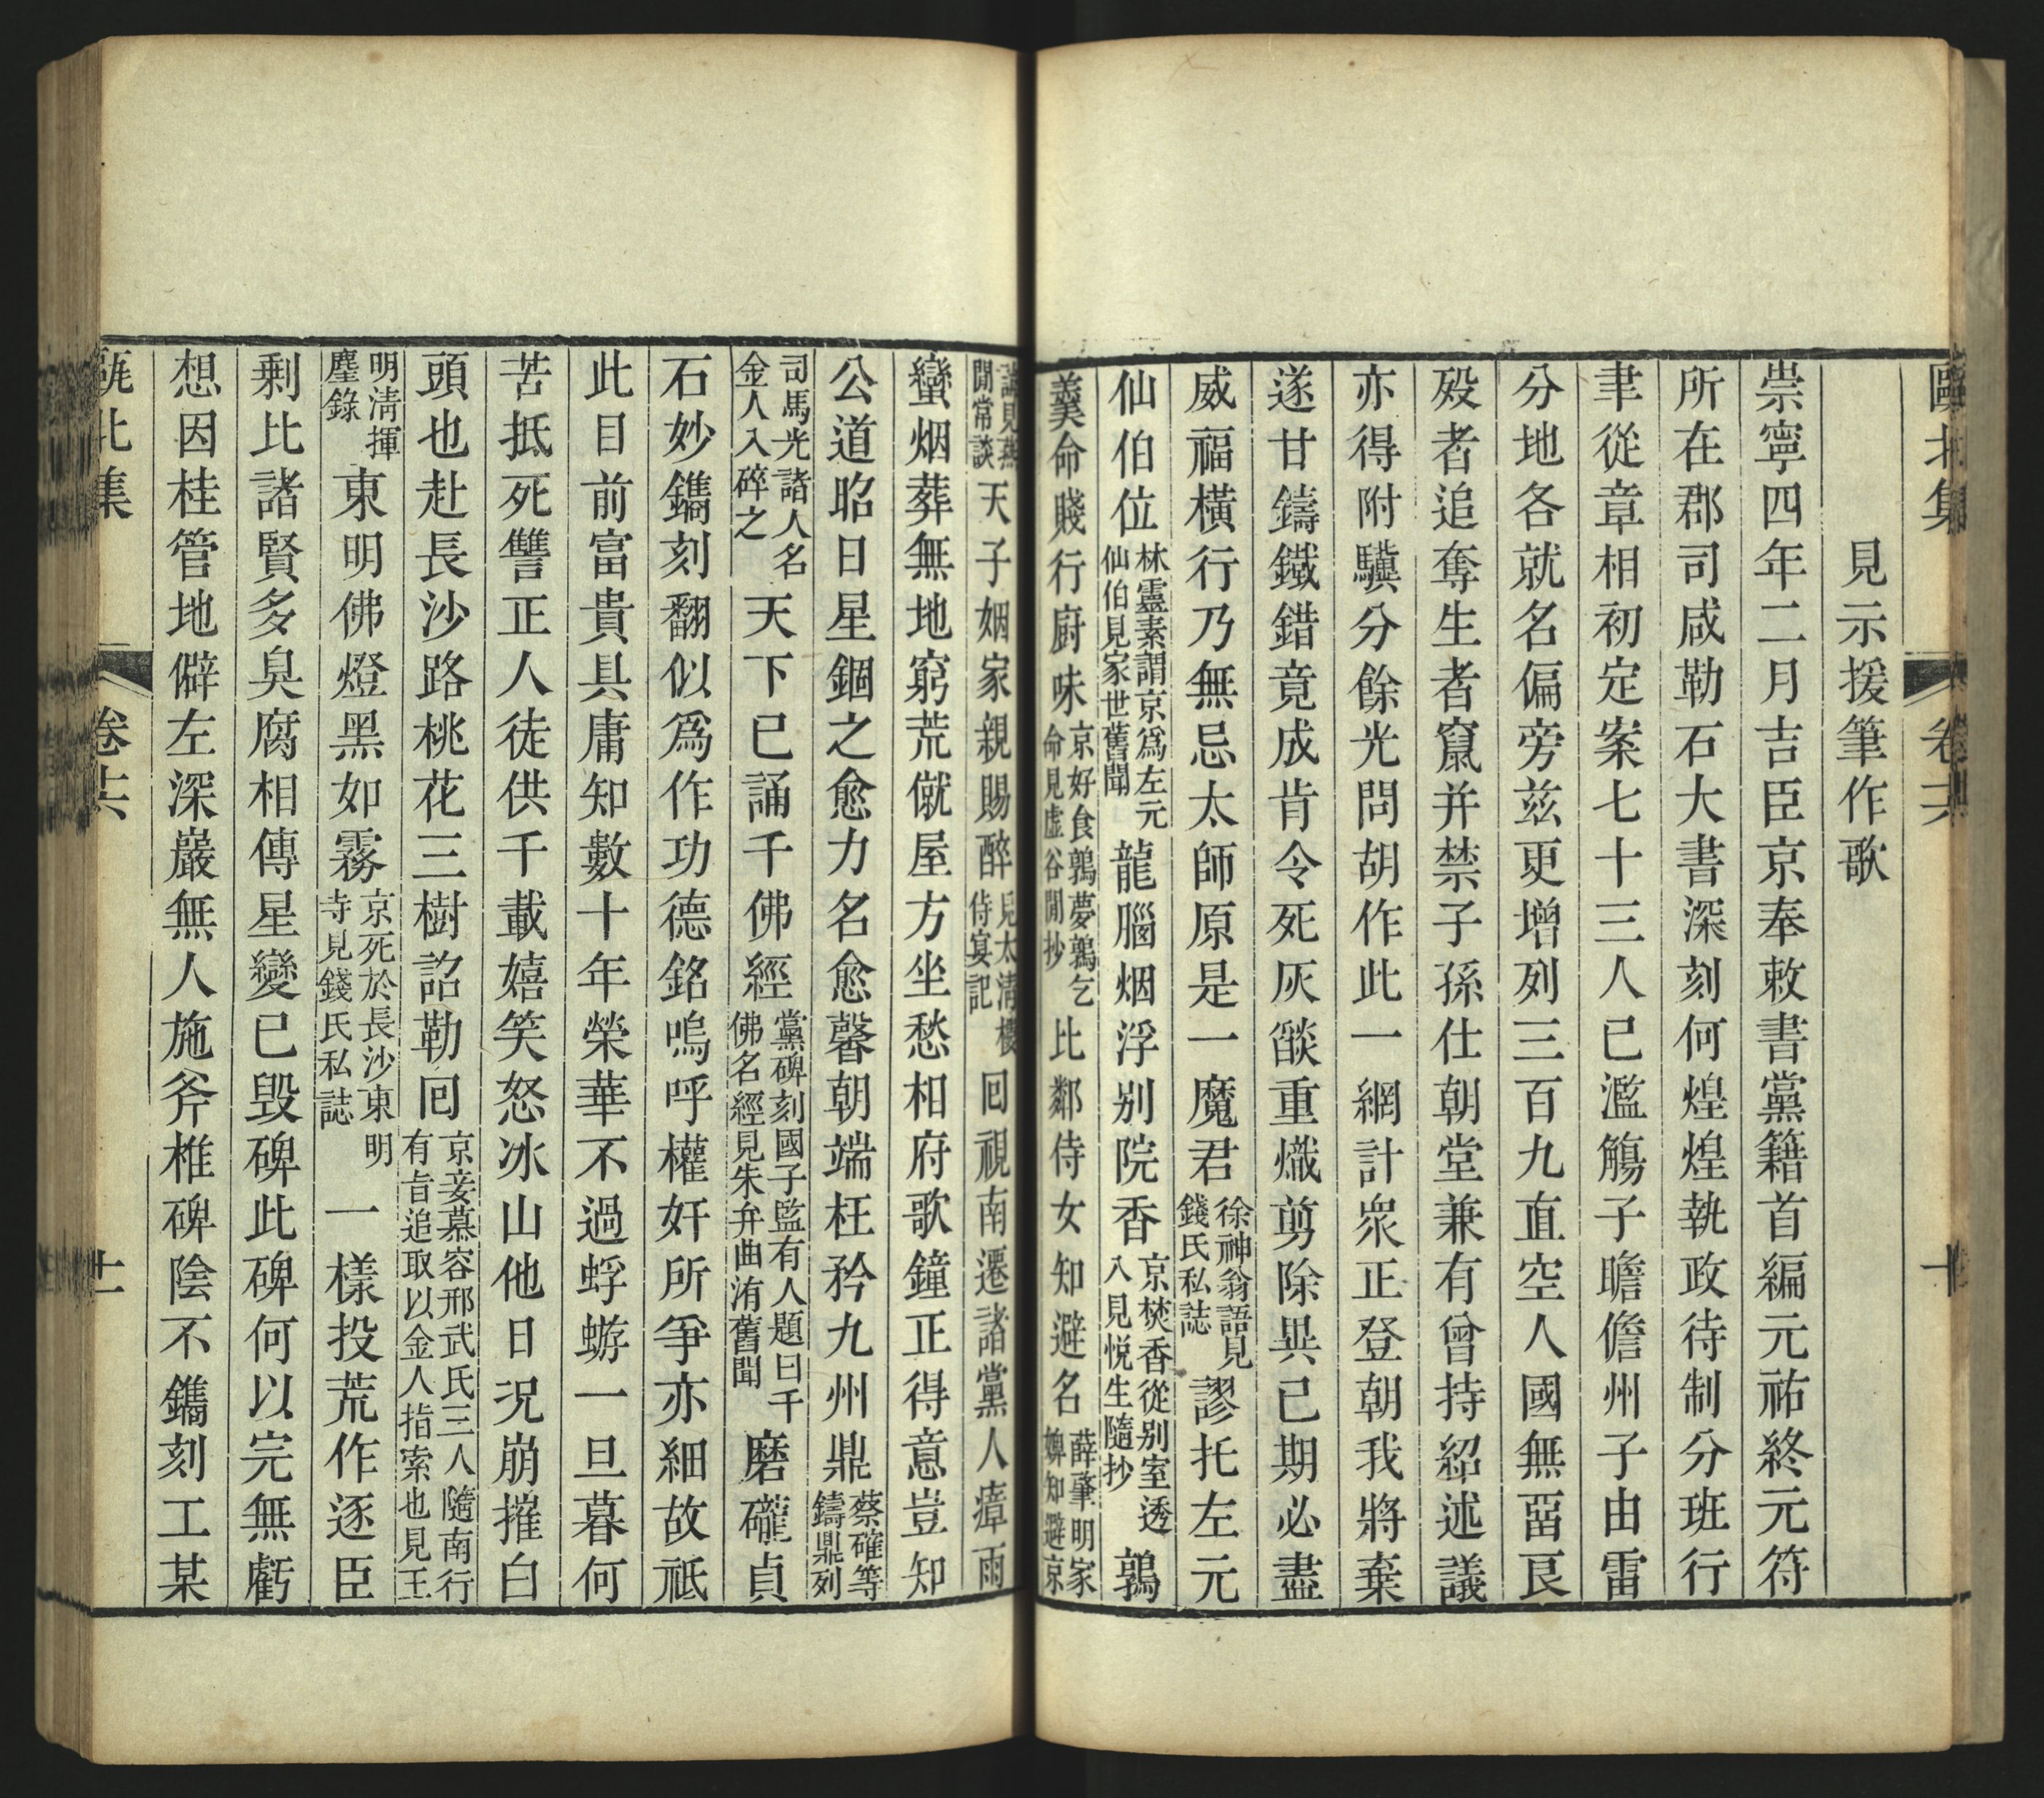 甌北集 卷二六 十
見示援筆作歌
崇寧四年二月吉臣京奉敕書黨籍首編元祐終元符
所在郡司咸勒石大書深刻何煌煌執政待制分班行
聿從章相初定案七十三人已濫觴子瞻儋州子由雷
分地各就名偏旁茲更增列三百九直空人國無畱良
殿者追奪生者竄并禁子孫仕朝堂兼有曾持紹述議
亦得附驥分餘光問胡作此一網計衆正登朝我將棄
遂甘鑄鐵錯竟成肯令死灰燄重熾剪除異己期必盡
威福橫行乃無忌太師原是一魔君徐神翁語見錢氏私誌謬托左元
仙伯位林靈素謂京爲左元仙伯見家世舊聞龍腦烟浮别院香京焚香從别室透入見悅生隨抄鶉
羹命賤行厨味京好食鶉夢鶉乞命見虛谷閒抄比鄰侍女知避名薛肇明家婢知避京
諱見燕閒常談天子姻家親賜醉見太清樓侍宴記回視南遷諸黨人瘴雨
蠻烟葬無地窮荒僦屋方坐愁相府歌鐘正得意豈知
公道昭日星錮之愈力名愈馨朝端枉矜九州鼎蔡確等鑄鼎列
司馬光諸人名金人入碎之天下已誦千佛經黨碑刻國子監有人題曰千佛名經見朱弁曲洧舊聞磨礲貞
石妙鐫刻翻似爲作功德銘嗚呼權奸所爭亦細故祗
此目前富貴具庸知數十年榮華不過蜉蝣一旦暮何
苦抵死讐正人徒供千載嬉笑怒冰山他日况崩摧白
頭也赴長沙路桃花三樹詔勒囘京妾慕容邢武氏三人隨南行有旨追取以金人指索也見王
明清揮麈錄東明佛燈黑如霧京死於長沙東明寺見錢氏私誌一樣投荒作逐臣
剩比諸賢多臭腐相傳星變已毀碑此碑何以完無虧
想因桂管地僻左深巖無人施斧椎碑陰不鐫刻工某
甌北集 卷二六 十一